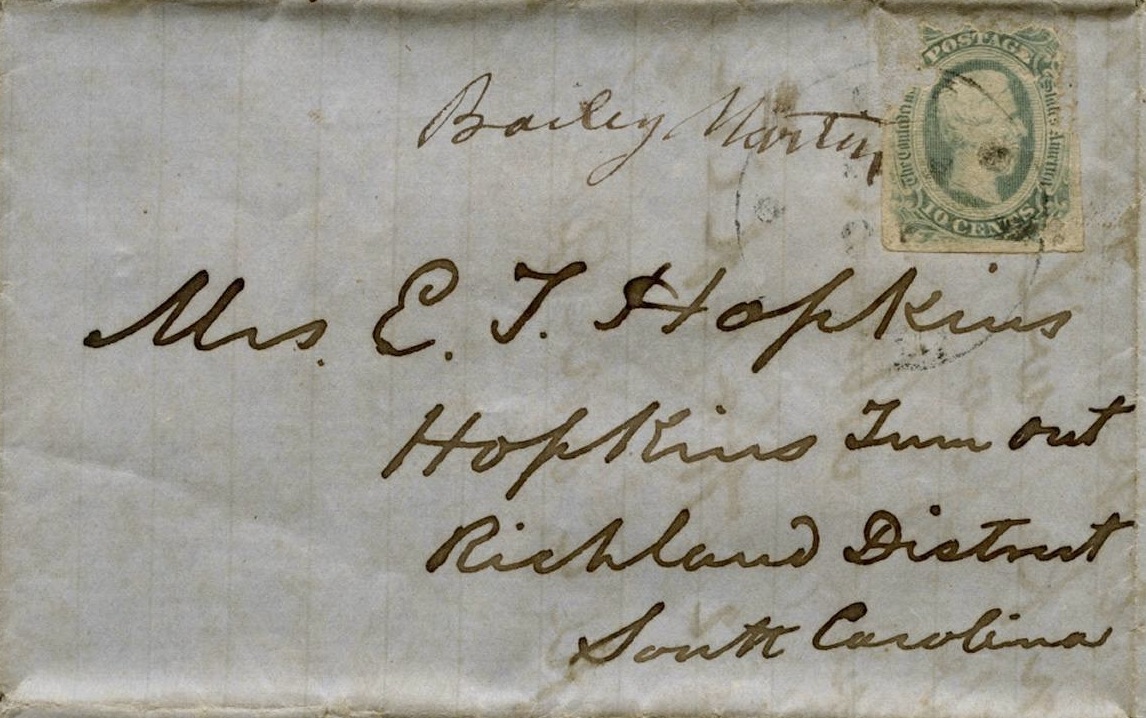 POSTAGE
The Confederate States America
10 CENTS
Bailey Martin
Mrs. E. T. Hopkins
Hopkins Turn out
Richland District
South Carolina